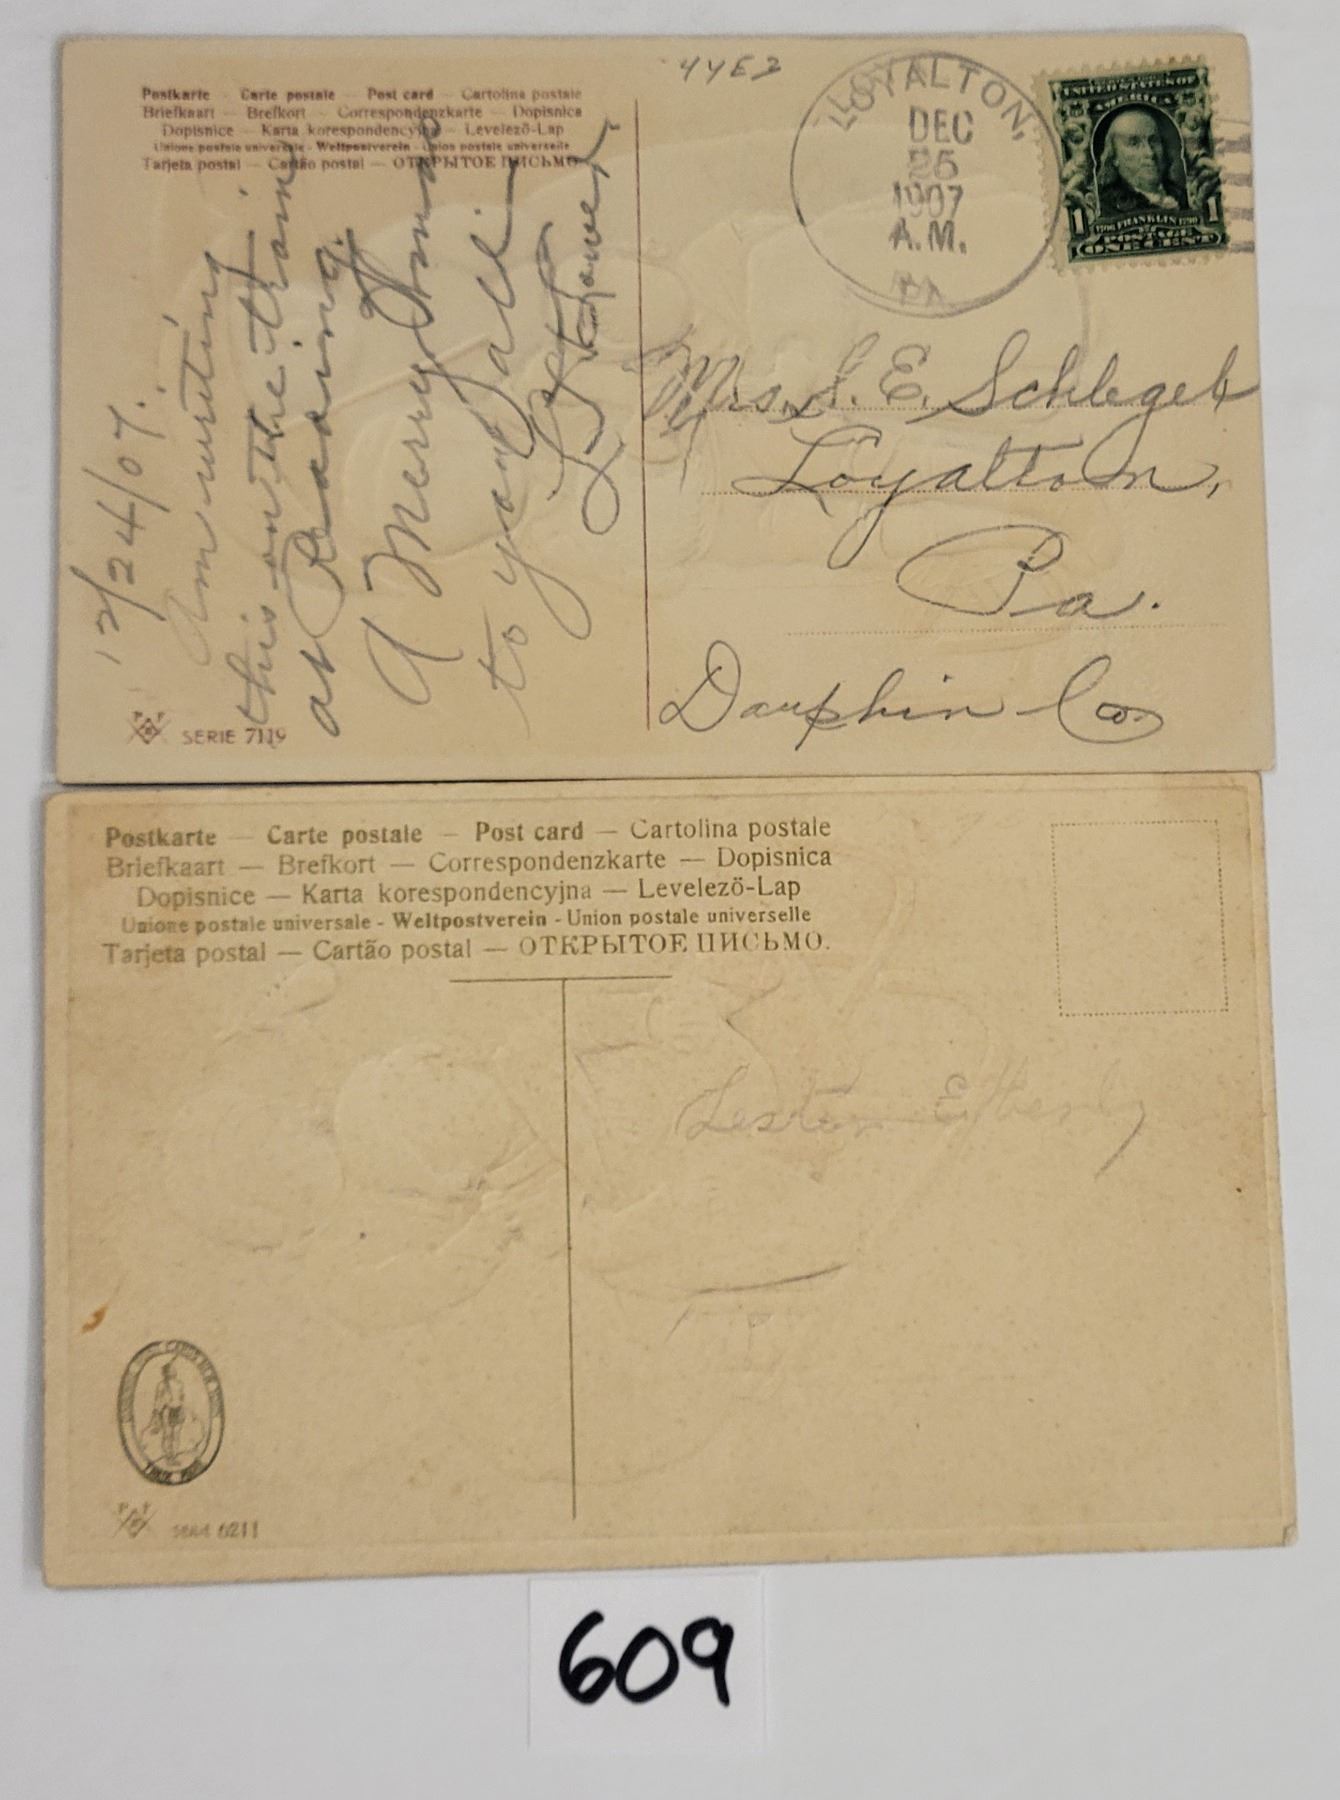 44E3
Postkarte — Carte postale — Post card — Cartolina postale
Briefkaart — Brefkort — Correspondenzkarte — Dopisnica
Dopisnice — Karta korespondencyjna — Levelező-Lap
Unione postale universale - Weltpostverein - Union postale universelle
Tarjeta postal — Cartão postal — ОТКРЫТОЕ ПИСЬМО
LOYALTON,
DEC
25
1907
A.M.
PA
UNITED STATES OF
AMERICA
1 FRANKLIN 1
POSTAGE
ONE CENT
12/24/07.
Am writing
this on the train
at Reading.
A Merry Xmas
to you all.
Mrs. S. E. Schlegel
Loyalton,
Pa.
Dauphin Co
SERIE 7119
Postkarte — Carte postale — Post card — Cartolina postale
Briefkaart — Brefkort — Correspondenzkarte — Dopisnica
Dopisnice — Karta korespondencyjna — Levelező-Lap
Unione postale universale - Weltpostverein - Union postale universelle
Tarjeta postal — Cartão postal — ОТКРЫТОЕ ПИСЬМО.
Lester
6211
609